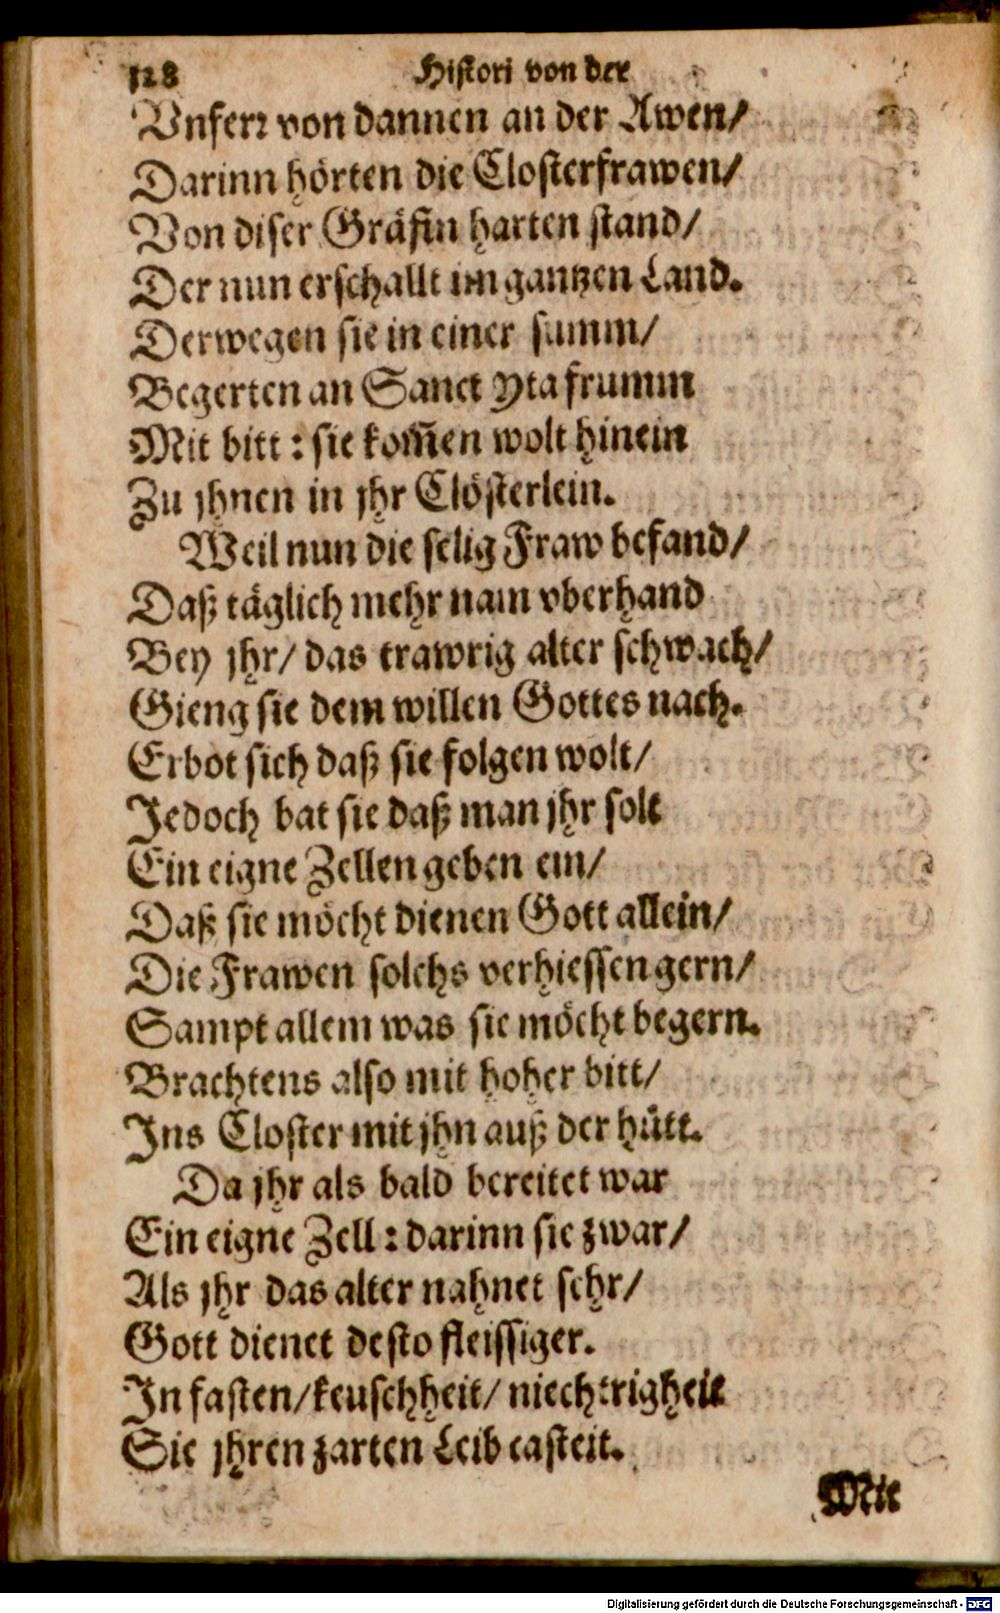 128 Histori von der
Vnferꝛ von dannen an der Awen/
Darinn hörten die Closterfrawen/
Von diser Gräfin harten stand/
Der nun erschallt im gantzen Land.
Derwegen sie in einer summ/
Begerten an Sanct yta frumm
Mit bitt: sie kom̃en wolt hinein
Zu jhnen in jhr Clösterlein.
Weil nun die selig Fraw befand/
Daß täglich mehr nam vberhand
Bey jhr/ das trawrig alter schwach/
Gieng sie dem willen Gottes nach.
Erbot sich daß sie folgen wolt/
Jedoch bat sie daß man jhr solt
Ein eigne Zellen geben ein/
Daß sie möcht dienen Gott allein/
Die Frawen solchs verhiessen gern/
Sampt allem was sie möcht begern.
Brachtens also mit hoher bitt/
Ins Closter mit jhn auß der hütt.
Da jhr als bald bereitet war
Ein eigne Zell: darinn sie zwar/
Als jhr das alter nahnet sehr/
Gott dienet desto fleissiger.
In fasten/ keuschheit/ niechtrigheit
Sie jhren zarten Leib casteit.
Mit
Digitalisierung gefördert durch die Deutsche Forschungsgemeinschaft - DFG